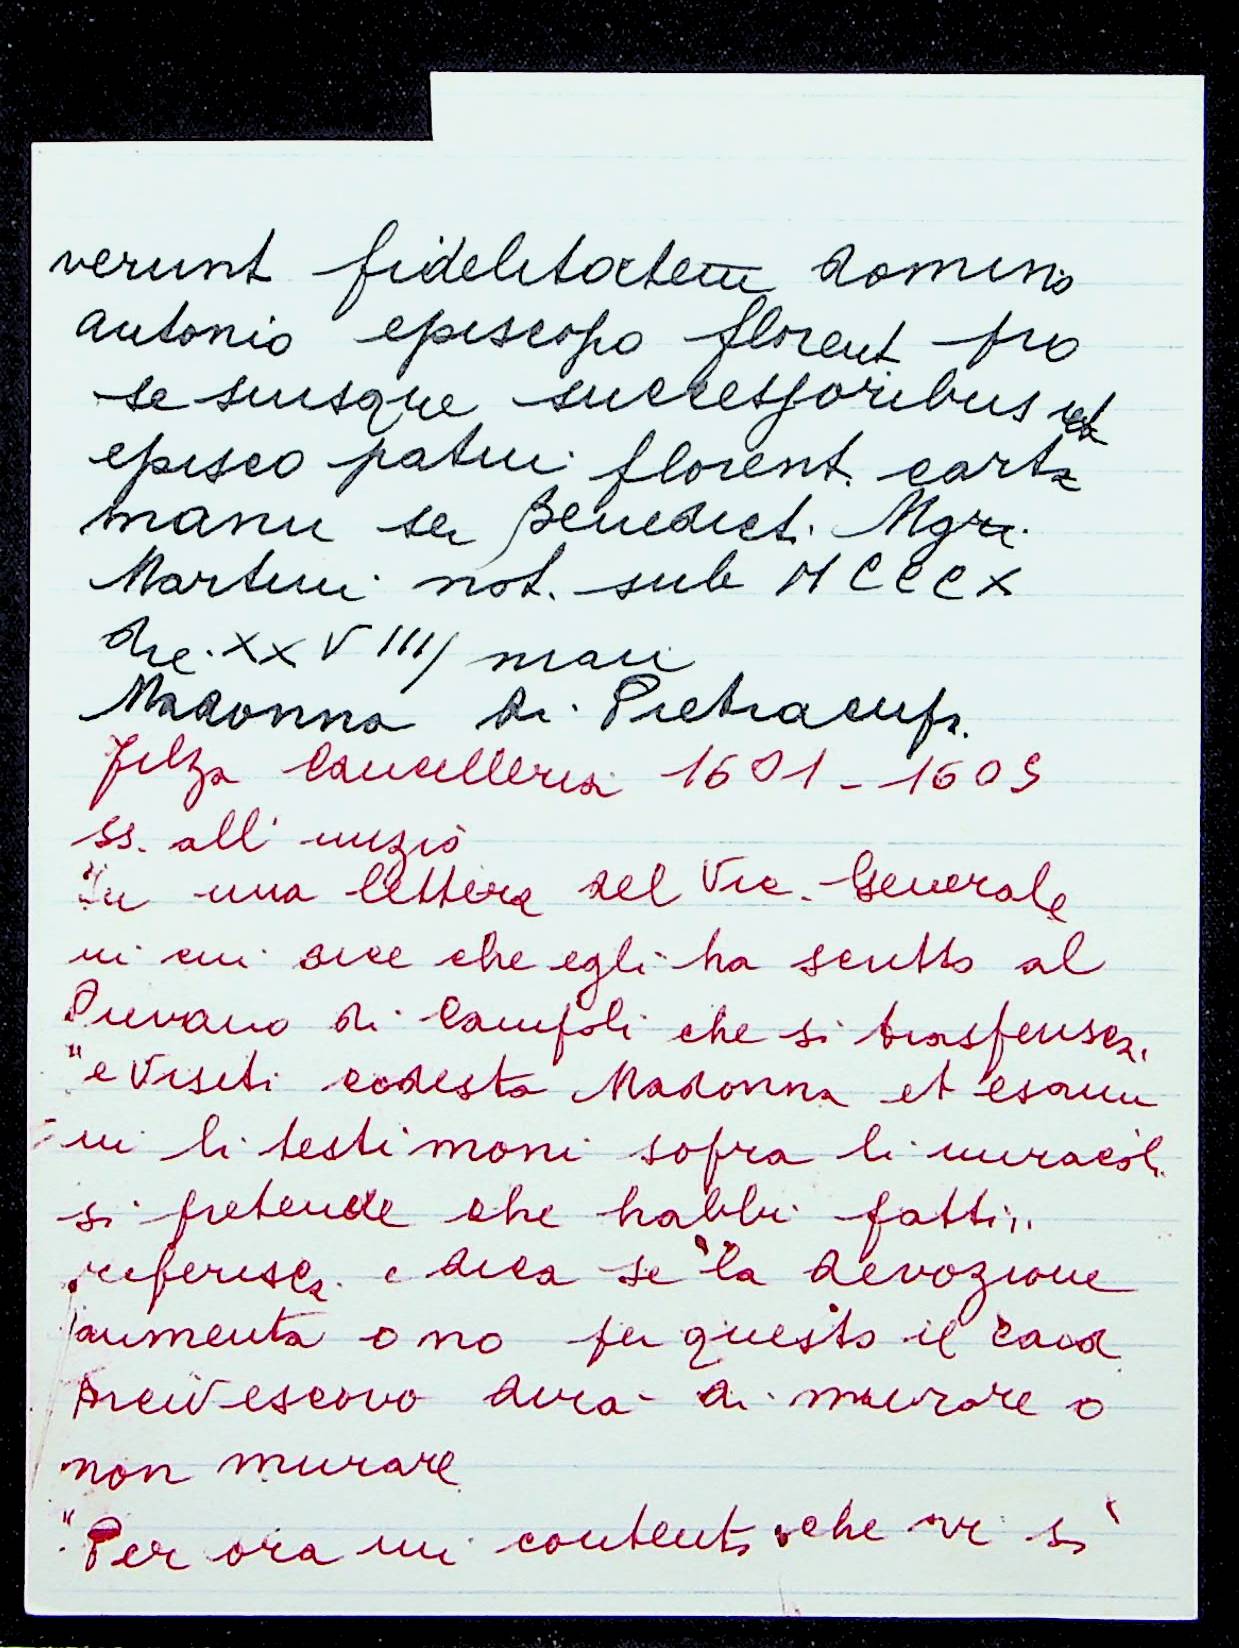 verunt fidelitatem domino
antonio episcopo florent pro
se suisque successoribus et
episco patui florent. carta
manu ser Benedict. Mgri.
Martini not. sub MCCCX
die. XXVIII maii
Madonna di Pietracupa.
Filza Cancelleria 1601 - 1609
ss. all'
"In una lettera del Vic. Generale
in cui dice che egli ha scritto al
Pievano di Campoli che si trasferisca,
"e visiti codesta Madonna et esami
ni li testimoni sopra li miracoli
si pretende che habbi fatti,,
riferisca e dica se la devozione
aumenta o no per questo il card
Arcivescovo dirà di murare o
non murare
"Per ora mi contento che vi si